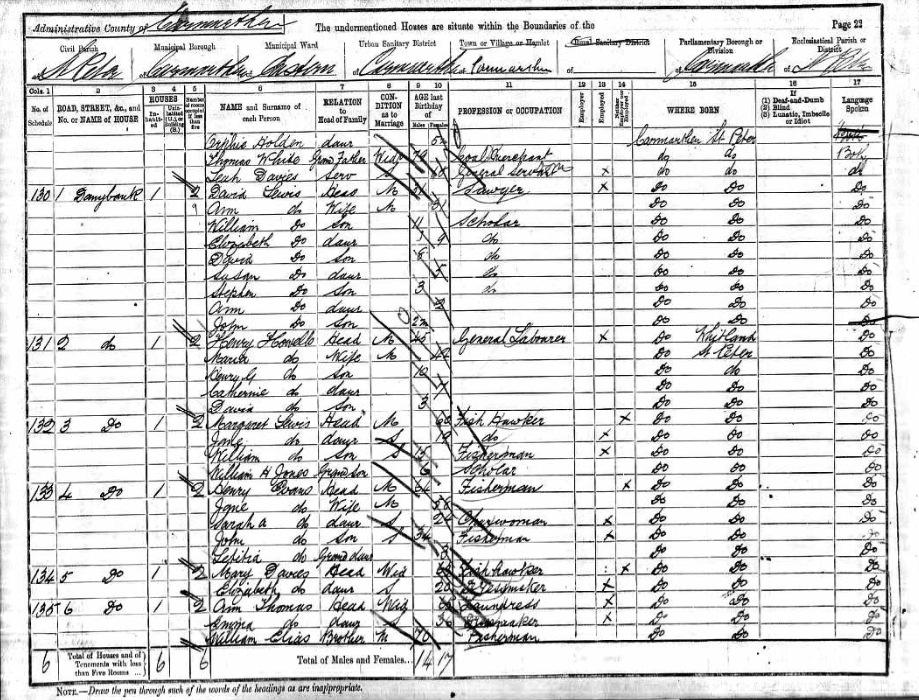 Administrative County of Carmarthen The undermentioned Houses are situate within the Boundaries of the Page 22
Civil Parish Municipal Borough Municipal Ward Urban Sanitary District Town or Village or Hamlet Rural Sanitary District Parliamentary Borough or Division Ecclesiastical Parish or District
of St Peter of Carmarthen of Eastern of Carmarthen of Carmarthen of of Carmarthen of St Peter
Cols. 1 2 3 4 5 6 7 8 9 10 11 12 13 14 15 16 17
No. of Schedule ROAD, STREET, &c., and No. or NAME of HOUSE HOUSES Inhabited Uninhabited (U.) or Building (B.) Number of rooms occupied if less than five NAME and Surname of each Person RELATION to Head of Family CONDITION as to Marriage AGE last Birthday of Males Females PROFESSION or OCCUPATION Employer Employed Neither Employer nor Employed WHERE BORN (1) Deaf-and-Dumb (2) Blind (3) Lunatic, Imbecile or Idiot Language Spoken
Holden daur Carmarthen St Peter
Thomas White Grand Father Coal Merchant do do Both
Leah Davies Serv S General Servant x do do do
130 1 Danybank 1 2 David Lewis Head M Sawyer x Do Do Do
Ann do Wife M Do Do Do
William Do Son 11 Scholar Do Do Do
Elizabeth Do daur 9 do Do Do Do
David Do Son 8 do Do Do Do
Susan Do daur 5 do Do Do Do
Stephen Do Son 3 do Do Do Do
Ann Do daur 2 Do Do Do
John Do Son 2m Do Do Do
131 2 do 1 2 Henry Howells Head M 45 General Labourer x Do Whitland Do
Maria do Wife M 42 Do St Peter Do
Henry G do Son 10 Do do Do
Catherine do daur 7 Do Do Do
David do Son 3 Do Do Do
132 3 Do 1 2 Margaret Lewis Head M 60 Fish Hawker x Do Do Do
Jane do daur S 19 do x Do Do Do
William do Son S 15 Fisherman x Do Do Do
William H Jones Grand Son 6 Scholar Do Do Do
133 4 Do 1 2 Henry Evans Head M 64 Fisherman x Do Do Do
Jane do Wife M 58 Do Do Do
Sarah A do daur S Charwoman x Do Do Do
John do Son S 34 Fisherman x Do Do Do
Letitia do Grand daur 3 Do Do Do
134 5 Do 1 2 Mary Davies Head Wid Fish hawker x Do Do Do
Elizabeth do daur S Dressmaker x Do Do Do
135 6 Do 1 2 Ann Thomas Head Wid Laundress x Do Do Do
Emma do daur S Dressmaker x Do Do Do
William Elias Brother M 70 Fisherman Do Do Do
6 Total of Houses and of Tenements with less than Five Rooms ... 6 6 Total of Males and Females... 14 17
NOTE.—Draw the pen through such of the words of the headings as are inappropriate.